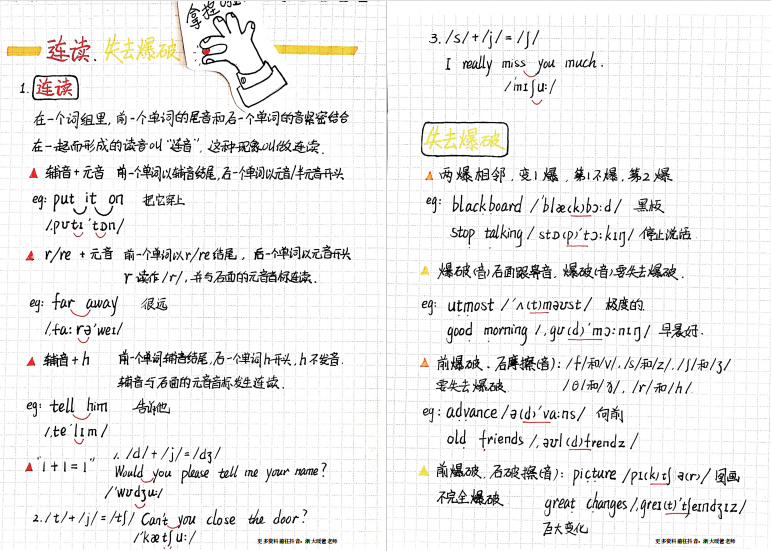 连读. 失去爆破
拿捏
1. 连读
在一个词组里, 前一个单词的尾音和后一个单词的首音紧密结合
在一起而形成的读音叫“连音”, 这种现象叫做连读.
▲ 辅音+元音 前一个单词以辅音结尾, 后一个单词以元音/半元音开头
eg: put it on 把它穿上
/ˌpʊtɪˈtɒn/
▲ r/re + 元音 前一个单词以r/re结尾, 后一个单词以元音开头
r 读作/r/, 并与后面的元音音标连读.
eg: far away 很远
/ˌfɑːrəˈweɪ/
▲ 辅音+h 前一个单词辅音结尾, 后一个单词h开头, h不发音.
辅音与后面的元音音标发生连读.
eg: tell him 告诉他
/ˌteˈlɪm/
▲ “1+1=1” 1. /d/+/j/=/dʒ/
Would you please tell me your name?
/ˈwʊdʒuː/
2. /t/+/j/=/tʃ/ Can't you close the door?
/ˈkætʃuː/
更多资料前往抖音: 浙大暖爸老师
3. /s/+/j/=/ʃ/
I really miss you much.
/ˈmɪʃuː/
失去爆破
▲ 两爆相邻, 变1爆, 第1不爆, 第2爆
eg: blackboard /ˈblæ(k)bɔːd/ 黑板
stop talking /stɒ(p)ˈtɔːkɪŋ/ 停止说话
▲ 爆破(音)后面跟鼻音, 爆破(音)要失去爆破.
eg: utmost /ˈʌ(t)məʊst/ 极度的.
good morning /ˌgʊ(d)ˈmɔːnɪŋ/ 早晨好.
▲ 前爆破, 后摩擦(音): /f/和/v/, /s/和/z/, /ʃ/和/ʒ/
要失去爆破 /θ/和/ð/, /r/和/h/.
eg: advance /ə(d)ˈvɑːns/ 向前
old friends /ˌəʊl(d)frendz/
▲ 前爆破, 后破擦(音): picture /pɪ(k)tʃə(r)/ 图画
不完全爆破 great changes /ˌgreɪ(t)ˈtʃeɪndʒɪz/
巨大变化
更多资料前往抖音: 浙大暖爸老师